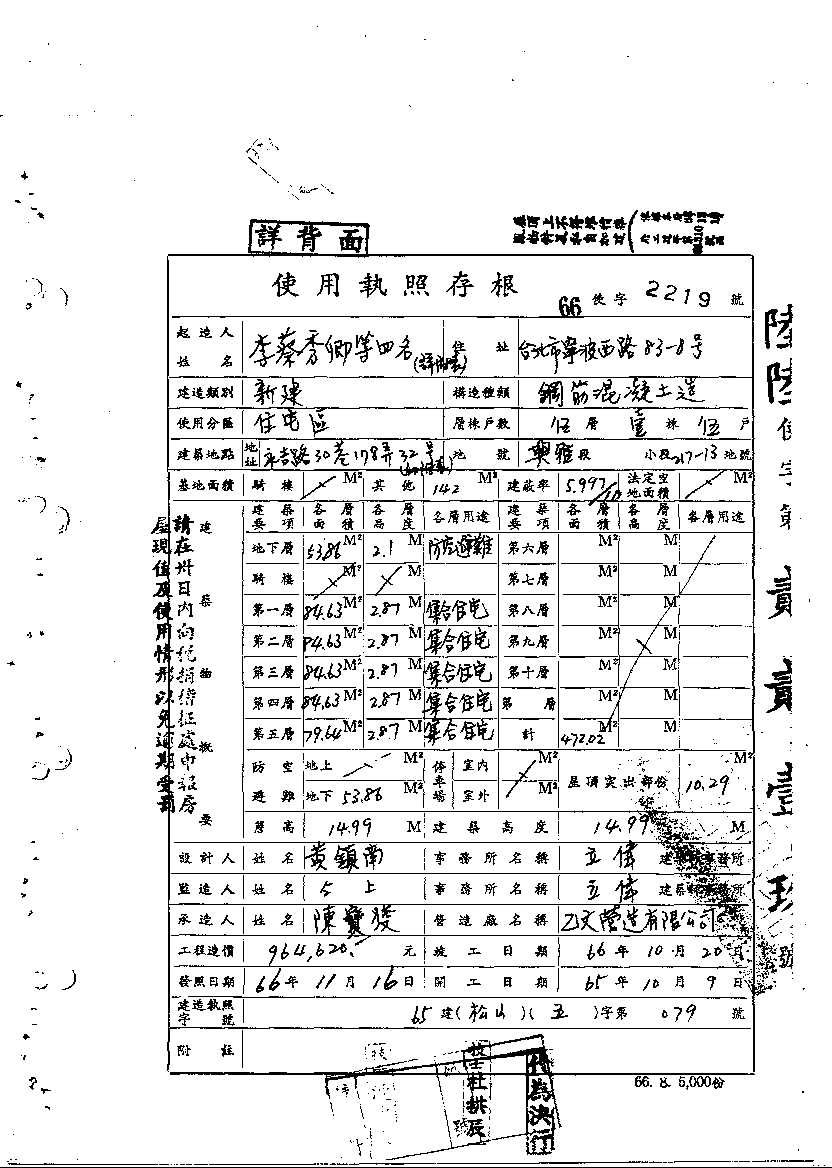 詳背面
使用執照存根
66 使字 2219 號
起造人姓名 李蔡秀卿等四名 住址 台北市寧波西路83-8号
建造類別 新建 構造種類 鋼筋混凝土造
使用分區 住宅區 層棟戶數 伍層 壹棟 伍戶
建築地點 地址 永吉路30巷178弄32号 地號 興雅段 小段217-13地號
基地面積 騎樓 M² 其他 142 M² 建蔽率 5.997/10 法定空地面積 M²
建築要項 各層面積 各層高度 各層用途 建築要項 各層面積 各層高度 各層用途
地下層 53.86 M² 2.1 M 防空避難 第六層 M² M
騎樓 M² M 第七層 M² M
第一層 84.63 M² 2.87 M 集合住宅 第八層 M² M
第二層 84.63 M² 2.87 M 集合住宅 第九層 M² M
第三層 84.63 M² 2.87 M 集合住宅 第十層 M² M
第四層 84.63 M² 2.87 M 集合住宅 第 層 M² M
第五層 79.64 M² 2.87 M 集合住宅 計 472.02 M² M
防空 地上 M² 停車場 室內 M² 屋頂突出部份 10.29 M²
避難 地下 53.86 M² 室外 M²
簷高 14.99 M 建築高度 14.99 M
設計人 姓名 黃鎮南 事務所名稱 立偉 建築師事務所
監造人 姓名 仝上 事務所名稱 立偉 建築師事務所
承造人 姓名 陳寶發 營造廠名稱 乙大營造有限公司
工程造價 964,620. 元 竣工日期 66年10月20日
發照日期 66年11月16日 開工日期 65年10月9日
建造執照字號 65建(松山)(五)字第 079 號
附註
66. 8. 5,000份
建築物概要
請在卅日內向稅捐稽征處申報房
屋現值及使用情形以免逾期受罰
陸陸使字第貳貳壹玖號
技士杜拱辰
代為決行